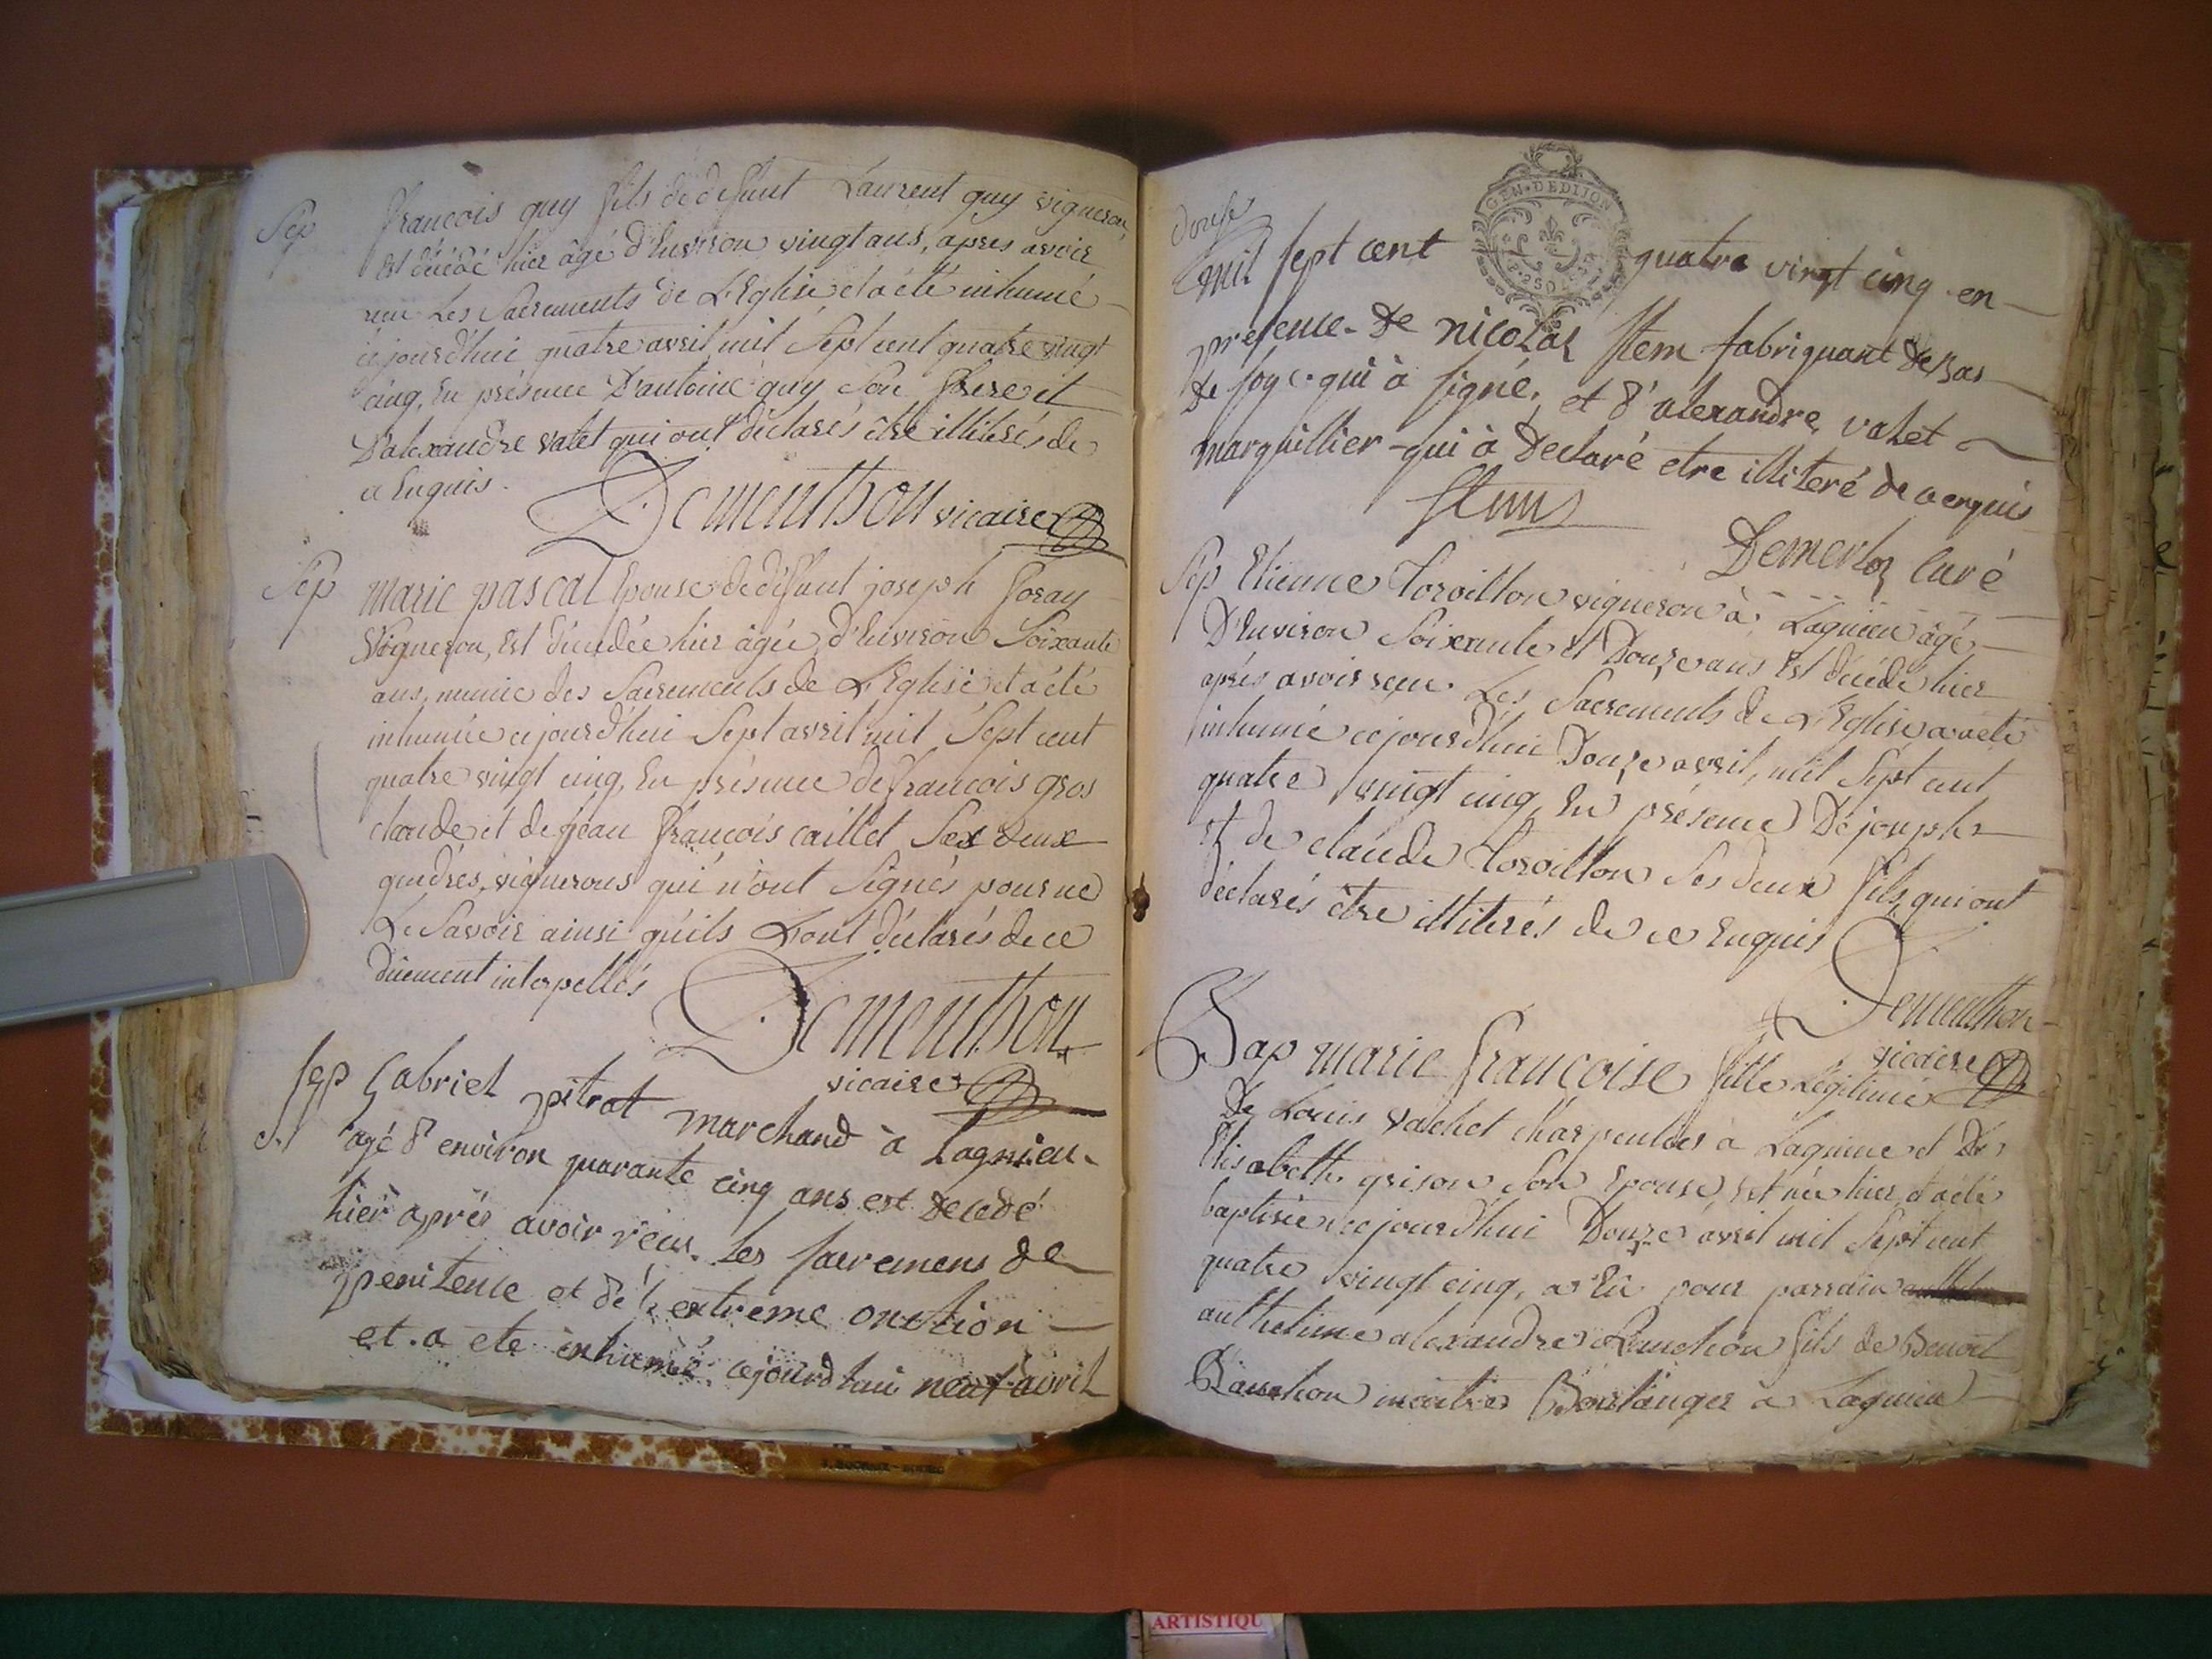 Sep françois guy fils de defunt Laurent guy vigneron,
est décédé hier âgé d'Environ vingt ans, apres avoir
reçu Les Sacrements de L'Eglise et a été inhumé
cejourd'hui quatre avril mil Sept cent quatre vingt
cinq, En présence D'antoine guy Son frere et
D'alexandre valet qui ont déclarés être illiterés de
ce Enquis.
Dementhon vicaire
Sep Marie pascal Epouse de défunt joseph foray
Vigneron, Est décedée hier âgée d'Environ Soixante
ans, munie des Sacrements de L'Eglise et a été
inhumée cejourd'hui Sept avril mil Sept cent
quatre vingt cinq, En présence de françois gros
claude et de jean françois caillet Ses deux
gendres, vignerons qui n'ont Signés pour ne
Le Savoir ainsi qu'ils L'ont déclarés de ce
Dûement interpellés
Dementhon
vicaire
Sep Gabriel pitrat marchand à Lagnieu
agé d'environ quarante cinq ans est decedé
hier après avoir reçu les sacremens de
penitence et de l'extreme onction
et a ete inhumé cejourd'hui neuf avril
douze
Mil sept cent quatre vingt cinq en
GEN. DE DIJON
presence de nicolas Stem fabriquant de bas
de soye qui à signé, et d'alexandre valet
marguillier qui à declaré etre illiteré de ce enquis
Stem
Demerloz curé
Sep Etienne Torvillon vigneron à Lagnieu âgé
D'Environ Soixante et Douze ans Est décédé hier
après avoir reçu Les Sacrements de L'Eglise a été
inhumé cejourd'hui Douze avril, mil Sept cent
quatre vingt cinq En présence De joseph
et de claude Torvillon Ses deux fils, qui ont
déclarés être illiterés de ce Enquis
Dementhon
vicaire
Bap marie françoise fille Légitime
De Louis vachet charpentier a Lagnieu et De
Elisabeth grison Son Epouse, Est née hier et a été
baptisée cejourd'hui Douze avril mil Sept cent
quatre vingt cinq, a Eû pour parrain
anthelme alexandre Planchon fils de Benoit
Planchon maitre Boulanger a Lagnieu
ARTISTIQU